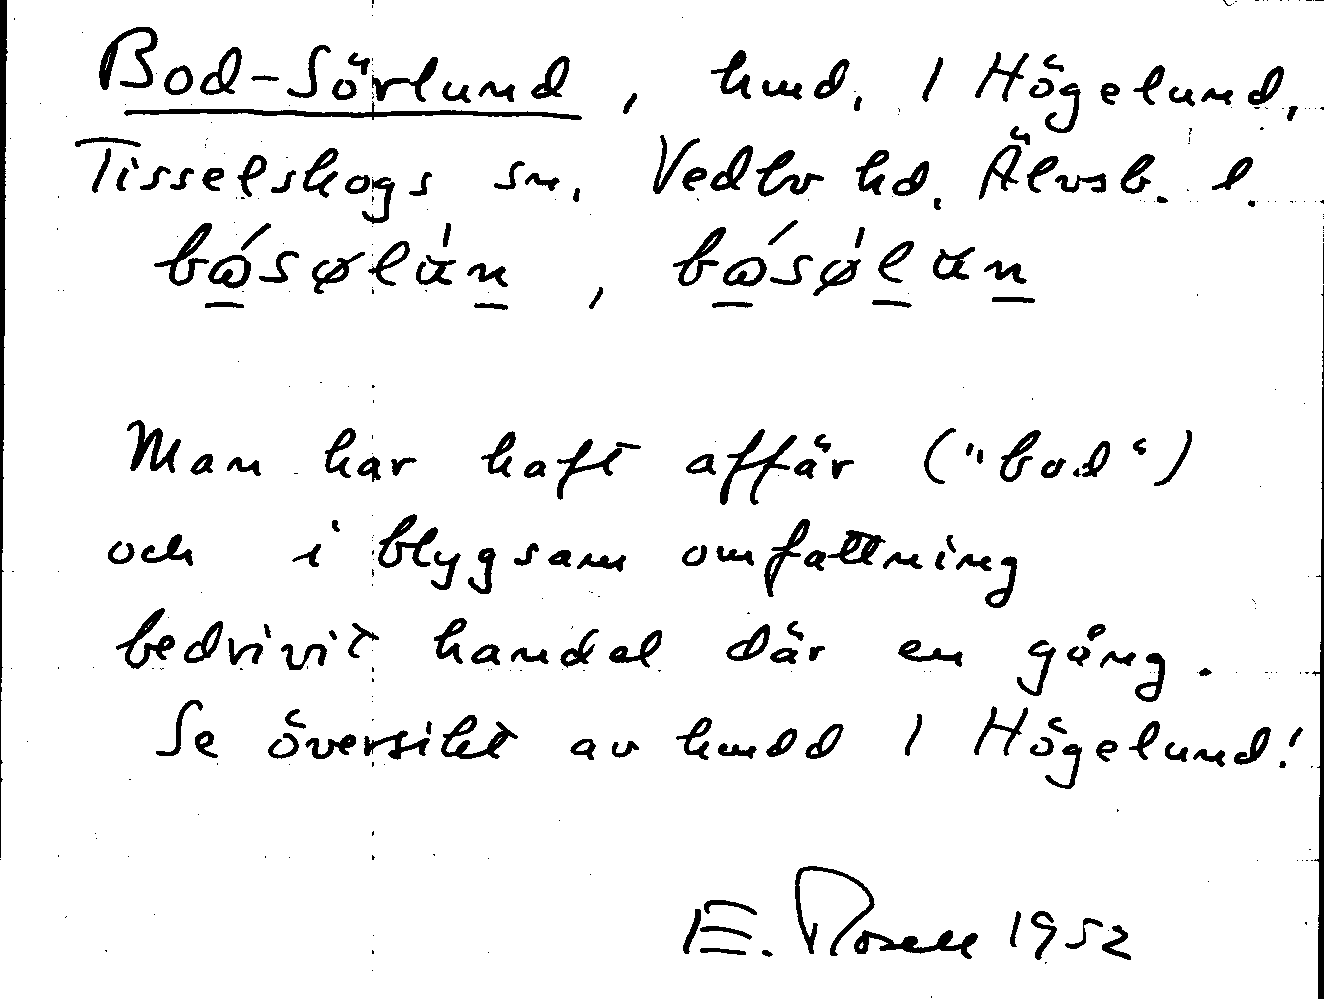 Bod-Sörlund, hmd. 1 Högelund,
Tisselskogs sn. Vedbo hd. Älvsb. l.
Man har haft affär ("bod")
och i blygsam omfattning
bedrivit handel där en gång.
Se översikt av hmdd 1 Högelund!
E. Rosell 1952